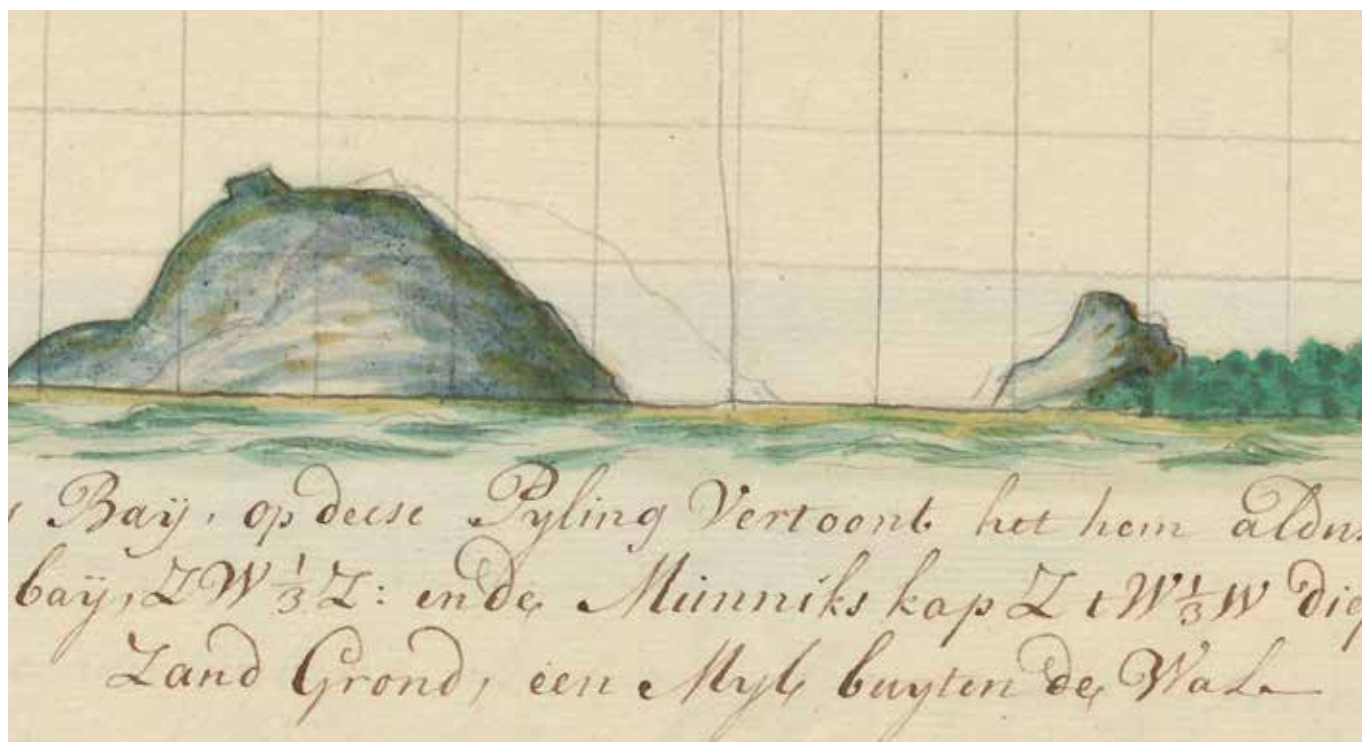 Baÿ, op deese Pyling Vertoont het hem aldus
baÿ, ZW 1/3 Z: en de Munniks kap Z t W 1/3 W diep
Zand Grond, een Myl buyten de Wal